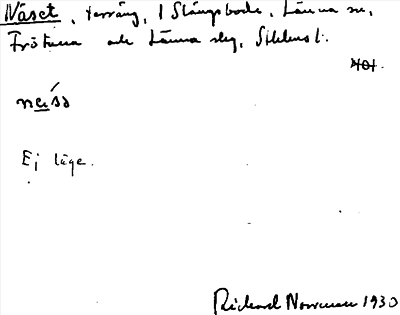 Näset, terräng, 1 Stångsbode, Länna sn,
Frötuna och Länna slg, Sthlms l.
401.
Ej läge.
Richard Norrman 1930